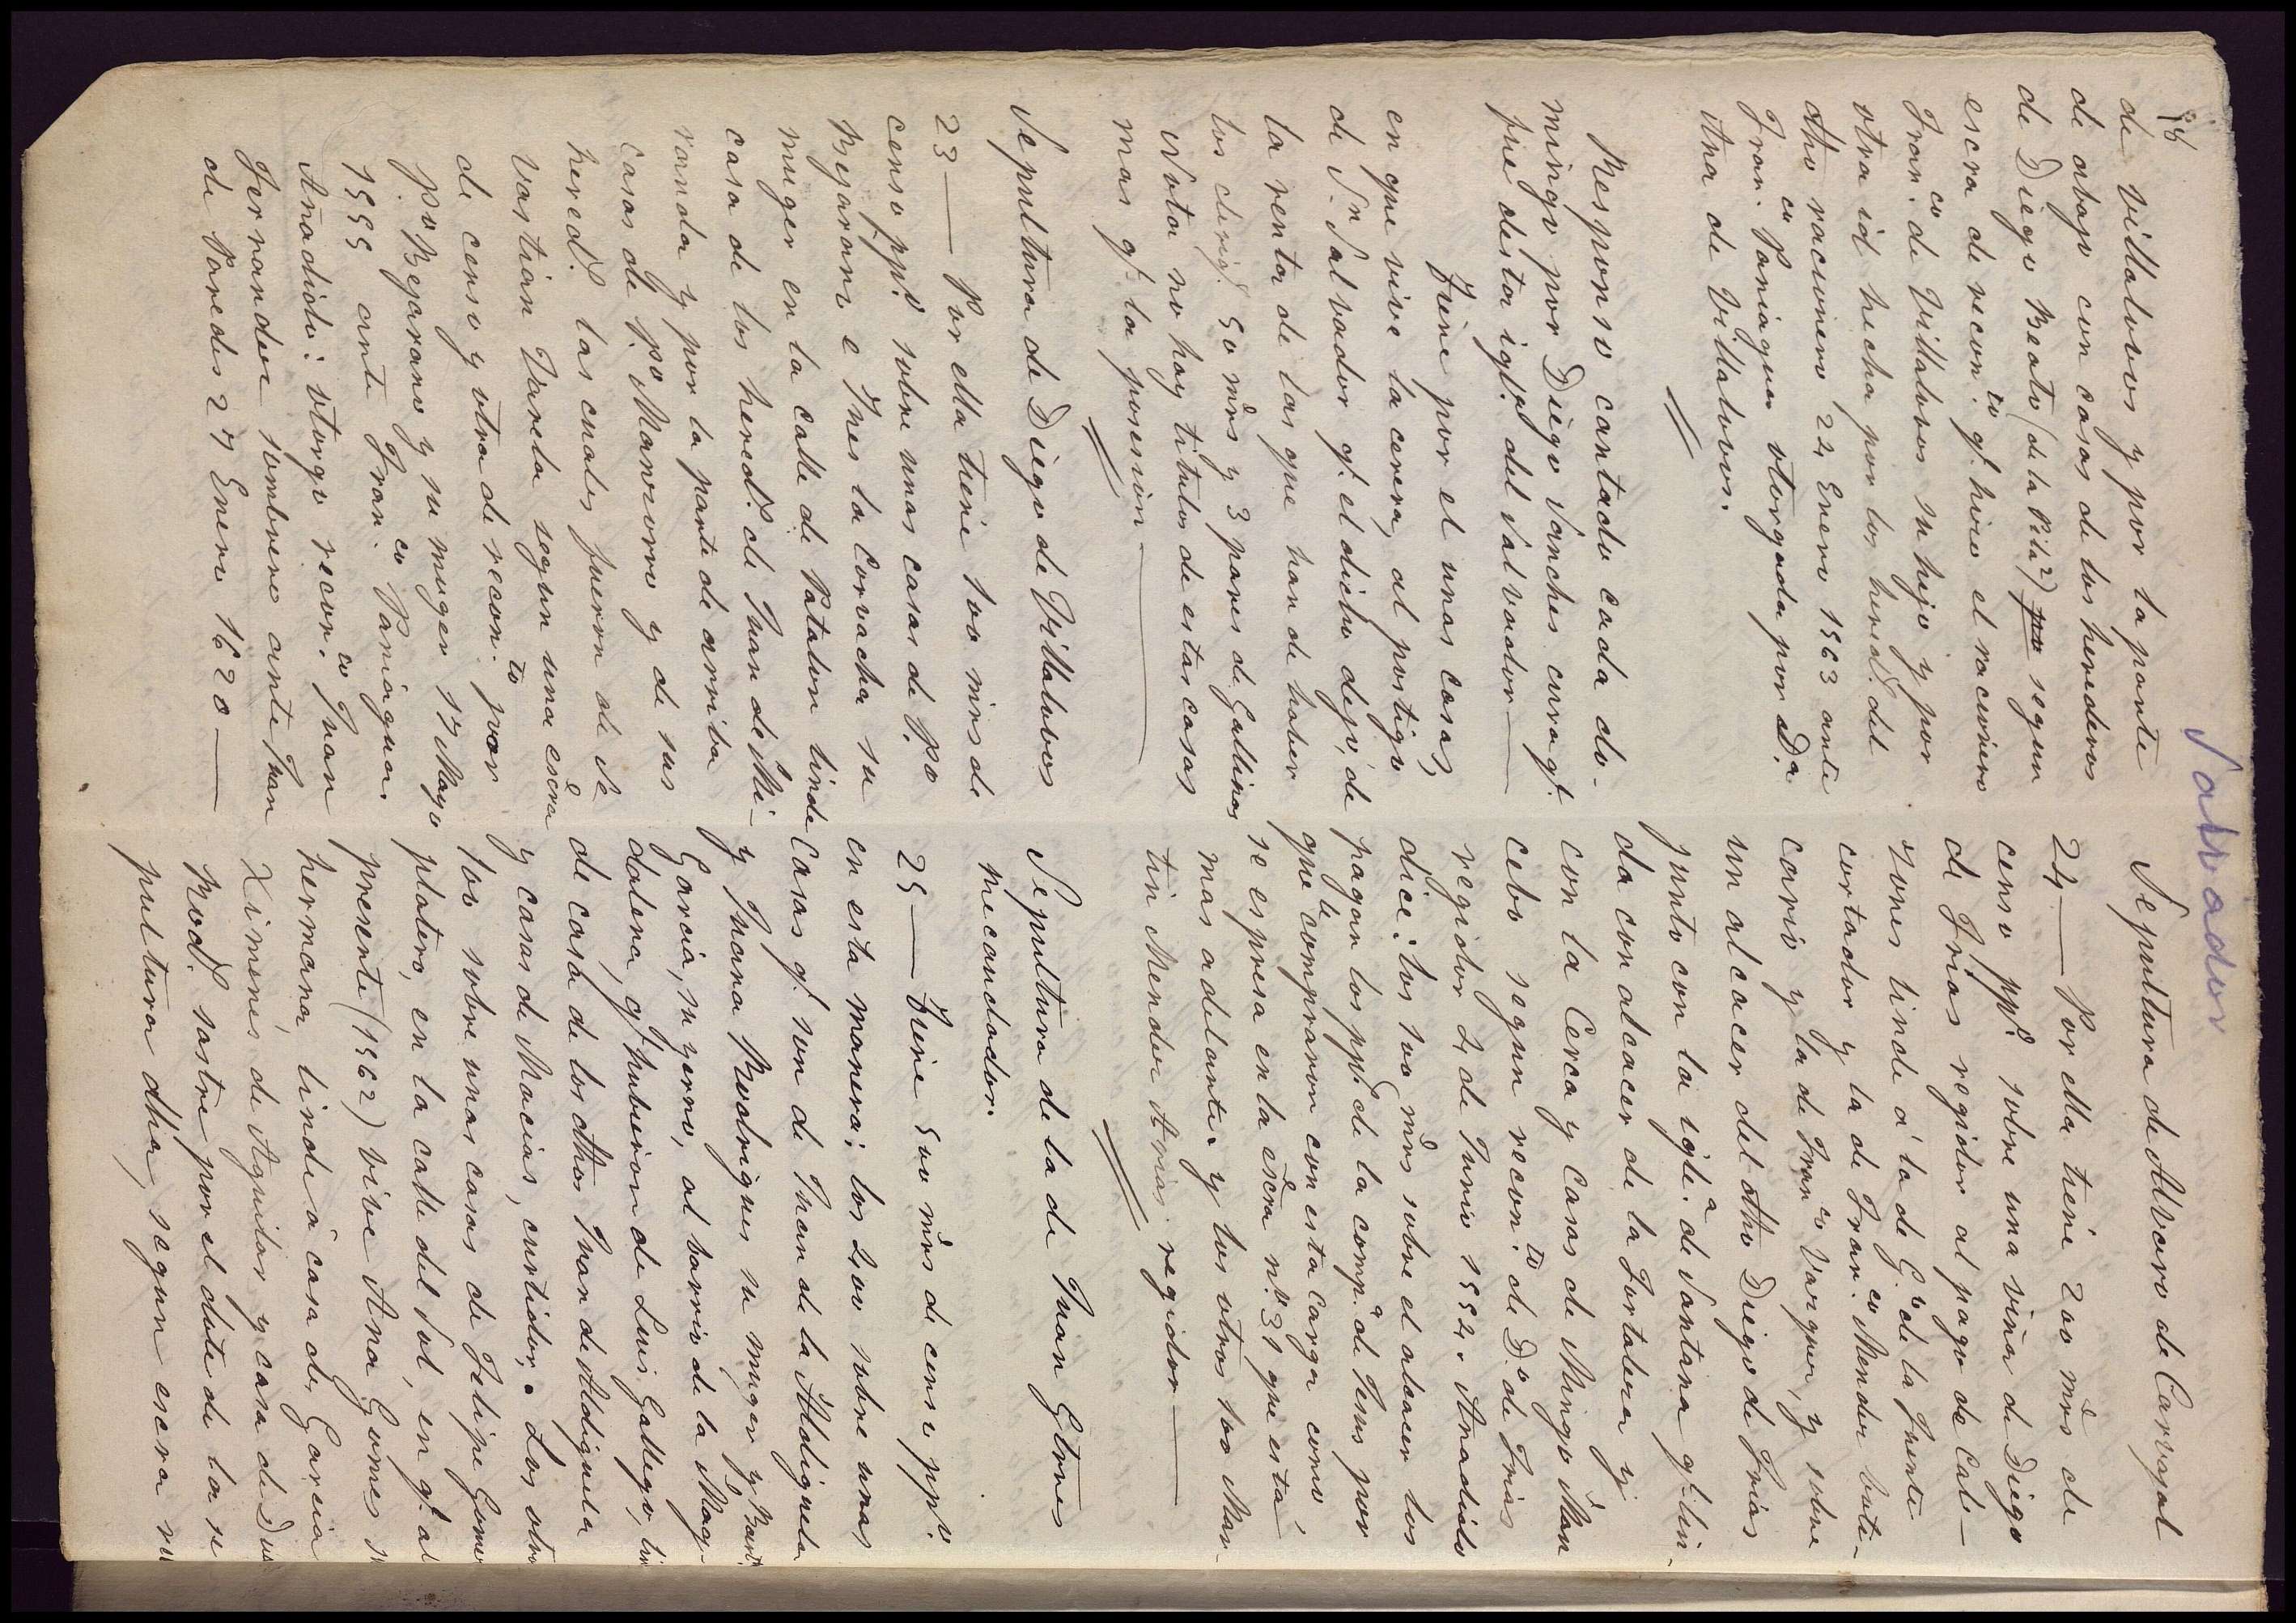 Salvador
96
de Villalovos y por la parte
de abajo con casas de los herederos
de Diego Beato (de la Pila?) segun
escra de recon.to q.e hizo el racionero
Fran.co de Villalovos su hijo y por
otra id hecha por los hered.s del
dho racionero 24 Enero 1563 ante
Fran.co Paniagua otorgada por D.a
Ana de Villalovos.
Responso cantado cada do-
mingo por Diego Sanches cura q.e
fue desta igl.a del Salvador
Tiene por el unas casas,
en que vive la cerera, al postigo
de S.n Salvador q.e el dicho dejó, de
la renta de las que han de haber
los clerig.s 50 mrs y 3 pares de Gallinas
Nota no hay titulos de estas casas
mas q.e la posesion
Sepultura de Diego de Villalovos
23 — Por ella tiene 100 mrs de
censo pp.o sobre unas casas de P.o
Bejarano e Ines la Corvacha su
muger en la calle de Patalon linde
casa de los hered.s de Juan de Mi-
randa y por la parte de arriba
casas de P.o Manzorro y de sus
hered.s las cuales fueron de Se
vastian Varela segun una escra
de censo y otra de recon.to por
P.o Bejarano y su muger 17 Mayo
1555 ante Fran.co Paniagua.
Añadido: otorgo recon.co Juan
Fernandez sombrero ante Juan
de Paredes 27 Enero 1620
Sepultura de Alvaro de Carvajal
24 — Por ella tiene 200 mrs de
censo pp.o sobre una viña de Diego
de Frias regidor al pago de Cal-
zones linde á la de G.o de la Fuente
cortador y la de Fran.co Mendez boti-
cario y la de Fran.co Vargues, y sobre
un alcacer del dho Diego de Frias
junto con la igle.a de Santana q.e lin-
da con alcacer de la Fortalera y
con la Cerca y casas de Mingo Man
cebo segun recon.to de D.o de Frias
regidor 4 de Junio 1554. Anadido
dice: los 100 mrs sobre el alcacer los
pagan los pp.s de la comp.a de Jesus por
que le compraron con esta carga como
se espresa en la escra n.o 31 que está
mas adelante. y los otros 100 Mar-
tin Mendez Arias regidor
Sepultura de la de Juan Gtrres
Mecaudador.
25 — Tiene 500 mrs de censo pp.o
en esta manera: los 400 sobre unas
casas q.e son de Juan de la Aldiguela
y Juana Rodrigues su muger y Bart.
Garcia, su yerno, al barrio de la Mag-
dalena, q.e hubieron de Luis Gallego, lin
de casa de los dhos Juan de Aldiguela
y casas de Macias, curtidor. Los otro
100 sobre unas casas de Felipe Gome
platero, en la calle del Sol, en q.e al
presente (1562) vive Ana Gomes s
hermana linde á casa de Garcia
Ximenes de Aguilar y casa de Du
Rod.s sastre por el dote de la se
pultura dha, segun escra su